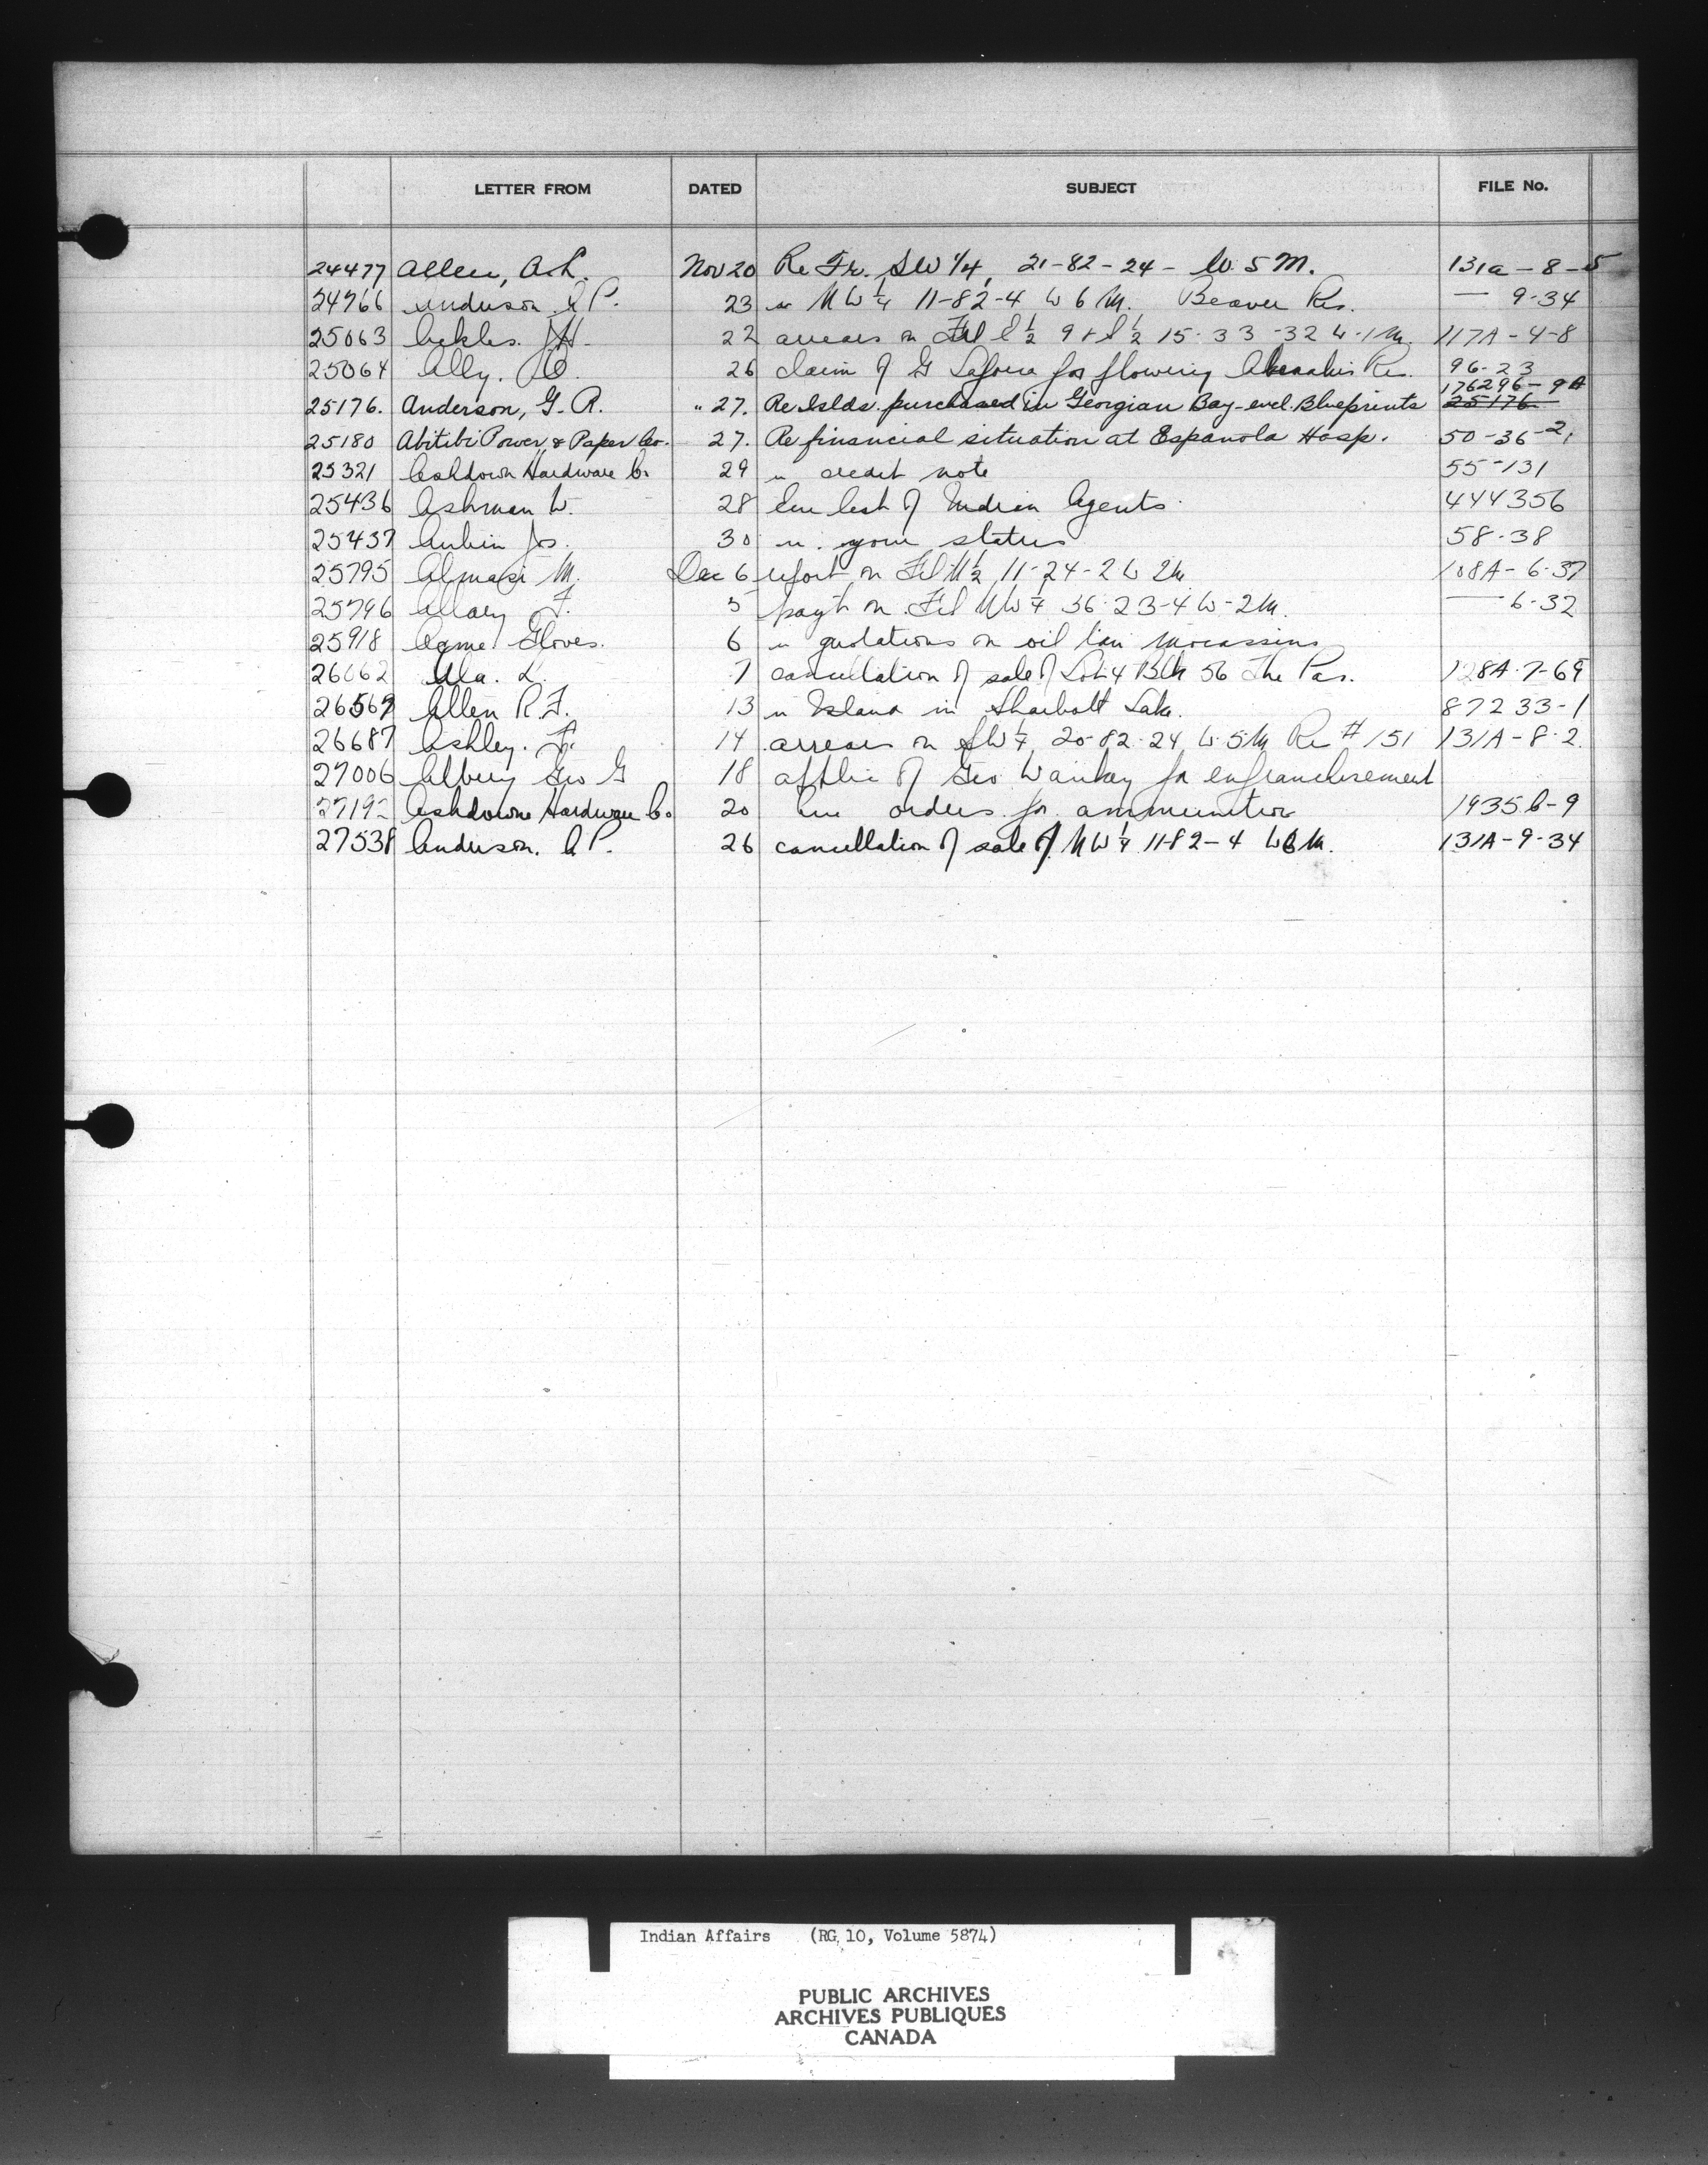 LETTER FROM DATED SUBJECT FILE No.
24477 Allen, A.L. Nov 20 Re Fr. SW 1/4, 21-82-24- W. 5 M. 131a-8-5
24766 Anderson A P. 23 " N W 1/4 11-82-4 W 6 M. Beaver Res. — 9-34
25063 J H. 22 arrears on 1/2 9 + 1/2 15-33-32 W-1 M. 117A-4-8
25064 Ally. 26 claim of G for flowing Res. 96-23
25176. Anderson, G. R. " 27. Re Islds. purchased in Georgian Bay-encl. Blueprints 176296-9A 25176
25180 Abitibi Power & Paper Co. 27. Re financial situation at Espanola Hosp. 50-36-2,
25321 Ashdown Hardware Co 29 " credit note 55-131
25436 Ashman W. 28 list of Indian Agents 444356
25437 Aubin Jos. 30 ". your status 58-38
25795 Almasi M. Dec 6 report on N 1/2 11-24-2 W 2M 108A-6-37
25796 Allary F. 5 payt on NW 1/4 36-23-4 W-2M. — 6-32
25918 Acme Gloves. 6 " quotations on oil tan mocassins
26062 Ala. L. 7 cancellation of sale of Lot 4 Blk 56 The Pas. 128A-7-69
26569 Allen R.F. 13 " Island in Sharbott Lake. 87233-1
26687 Ashley. F. 14 arrears on SW 1/4 20-82-24 W-5M Res # 151 131A-8-2.
27006 Albery Geo G 18 applic of Geo for enfranchisement
27192 Ashdowne Hardware Co 20 orders for ammunition 1935 6-9
27538 Anderson. A P. 26 cancellation of sale of NW 1/4 11-82-4 W6M. 131A-9-34
Indian Affairs (RG 10, Volume 5874)
PUBLIC ARCHIVES
ARCHIVES PUBLIQUES
CANADA